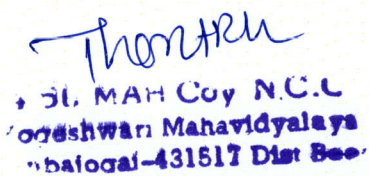 51, MAH Coy N.C.C
ogeshwari Mahavidyalaya
bajogai-431517 Dist Bee